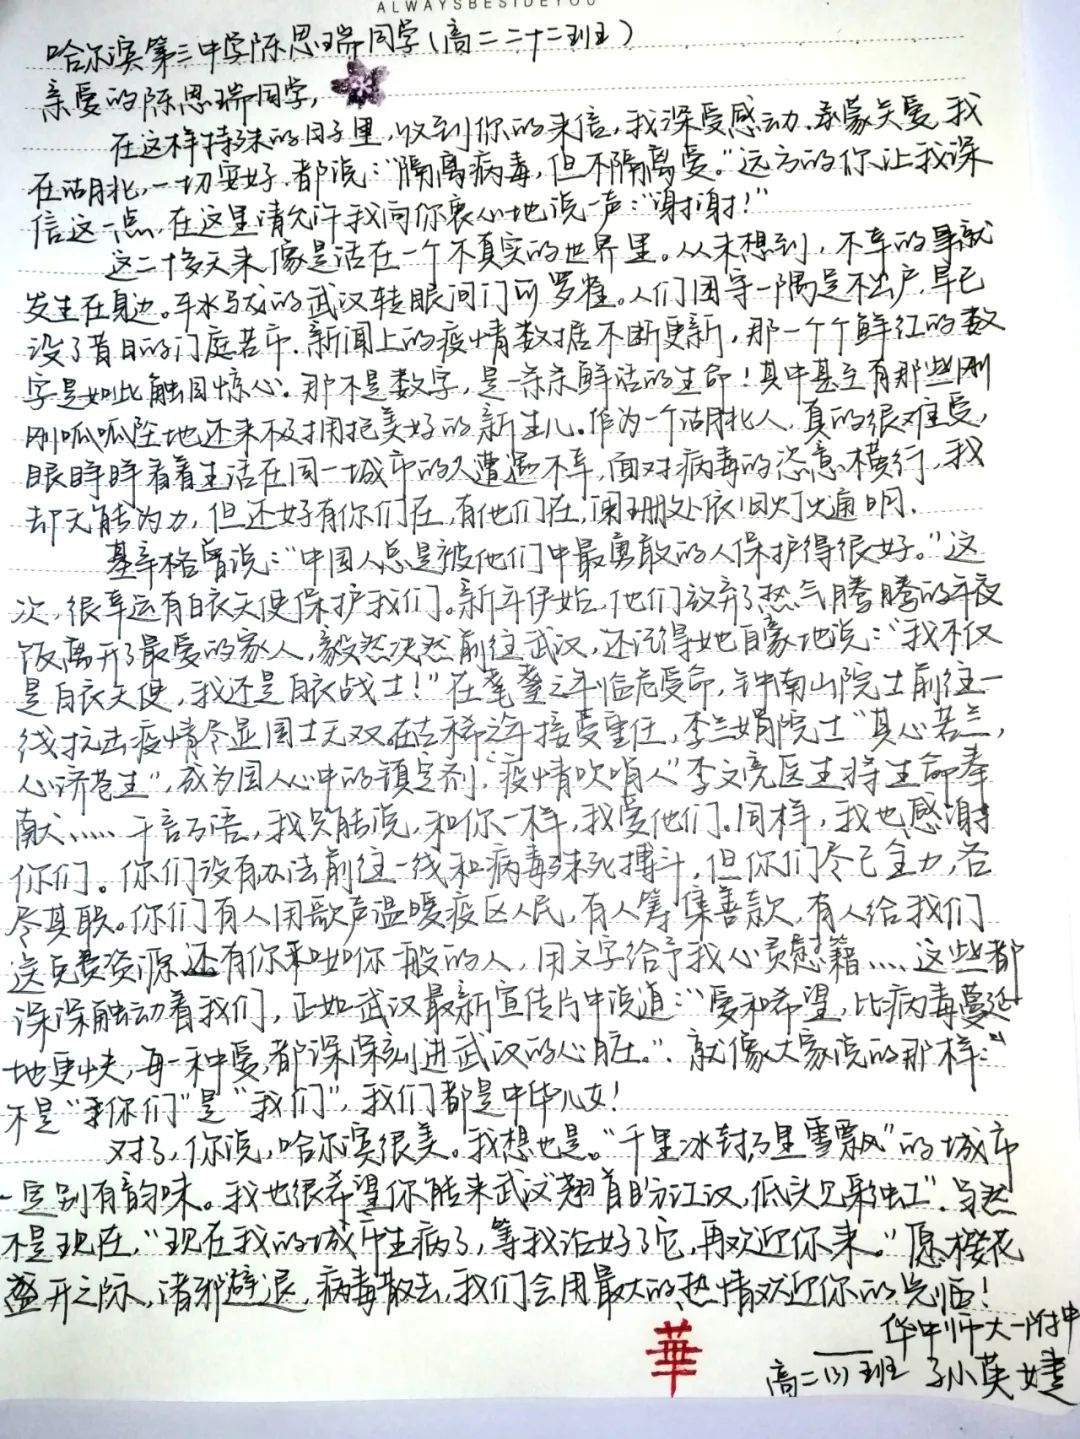 ALWAYSBESIDEYOU
哈尔滨第三中学陈思瑞同学(高二二十二班)
亲爱的陈思瑞同学,
在这样特殊的日子里,收到你的来信,我深受感动.承蒙关爱,我
在湖北,一切安好.都说:“隔离病毒,但不隔离爱。”远方的你,让我深
信这一点,在这里请允许我向你衷心地说一声:“谢谢!”
这二十多天来,像是活在一个不真实的世界里。从未想到,不幸的事就
发生在身边。车水马龙的武汉转眼间门可罗雀。人们困守一隅足不出户,早已
没了昔日的门庭若市.新闻上的疫情数据不断更新,那一个个鲜红的数
字是如此触目惊心。那不是数字,是一条条鲜活的生命!其中甚至有那些刚
刚呱呱坠地还未来及拥抱美好的新生儿。作为一个湖北人,真的很难受,
眼睁睁看着生活在同一城市的人遭遇不幸,面对病毒的恣意横行,我
却无能为力,但还好有你们在,有他们在,阑珊处依旧灯火通明.
基辛格曾说:“中国人总是被他们中最勇敢的人保护得很好。”这
次,很幸运有白衣天使保护我们。新年伊始,他们放弃了热气腾腾的年夜
饭离开了最爱的家人,毅然决然前往武汉,还记得她自豪地说:“我不仅
是白衣天使,我还是白衣战士!”在耄耋之年临危受命,钟南山院士前往一
线抗击疫情尽显国士无双.在古稀之年接受重任,李兰娟院士“真心若兰,
心济苍生”,成为国人心中的镇定剂,“疫情吹哨人”李文亮医生将生命奉
献……千言万语,我只能说,和你一样,我爱他们.同样,我也感谢
你们。你们没有办法前往一线和病毒殊死搏斗,但你们尽己全力,各
尽其职。你们有人用歌声温暖疫区人民,有人筹集善款,有人给我们
送免费资源,还有你和如你一般的人,用文字给予我心灵慰籍……这些都
深深触动着我们,正如武汉最新宣传片中说道:“爱和希望,比病毒蔓延
地更快,每一种爱,都深深刻进武汉的心脏。”.就像大家说的那样:“
不是“我你们”是“我们”,我们都是中华儿女!
对了,你说,哈尔滨很美。我想也是。“千里冰封,万里雪飘”的城市
一定别有韵味。我也很希望你能来武汉“翘首盼江汉,低头见彩虹”.当然
不是现在,“现在我的城市生病了,等我治好了它,再欢迎你来。”愿樱花
盛开之际,诸邪避退,病毒散去,我们会用最大的热情欢迎你的光临!
华中师大一附中
高二(3)班 孙英婕
華